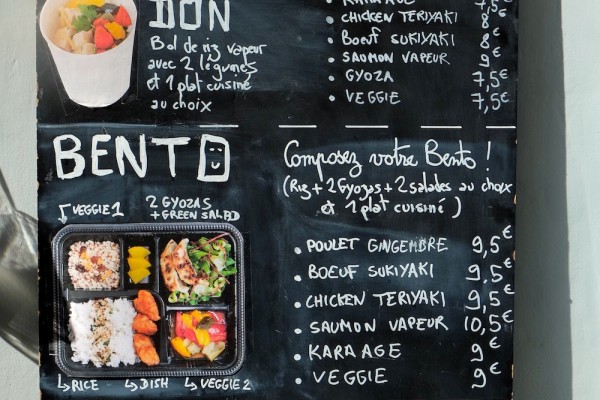 DON
Bol de riz vapeur
avec 2 légumes
et 1 plat cuisiné
au choix
KARAAGE 7,5€
• CHICKEN TERIYAKI 8€
• BOEUF SUKIYAKI 8€
• SAUMON VAPEUR 9€
• GYOZA 7,5€
• VEGGIE 7,5€
BENTO
VEGGIE 1
2 GYOZAS
+ GREEN SALAD
RICE
DISH
VEGGIE 2
Composez votre Bento !
(Riz + 2 Gyozas + 2 salades au choix
et 1 plat cuisiné)
• POULET GINGEMBRE 9,5€
• BOEUF SUKIYAKI 9,5€
• CHICKEN TERIYAKI 9,5€
• SAUMON VAPEUR 10,5€
• KARA AGE 9€
• VEGGIE 9€